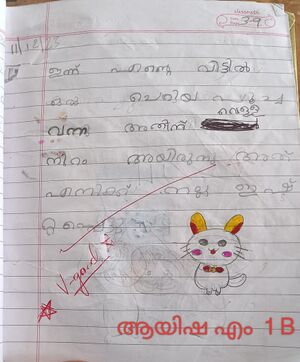 classmate
39
11/12/23
ഇന്ന് എന്റെ വീട്ടിൽ
ഒരു ചെറിയ പൂച്ച
വെള്ള
വന്നു അതിന്
നിറം ആയിരുന്നു അത്
എനിക്ക് നല്ല ഇഷ്
ട പ്പെട്ടു
V-good
ആയിഷ എം 1 B